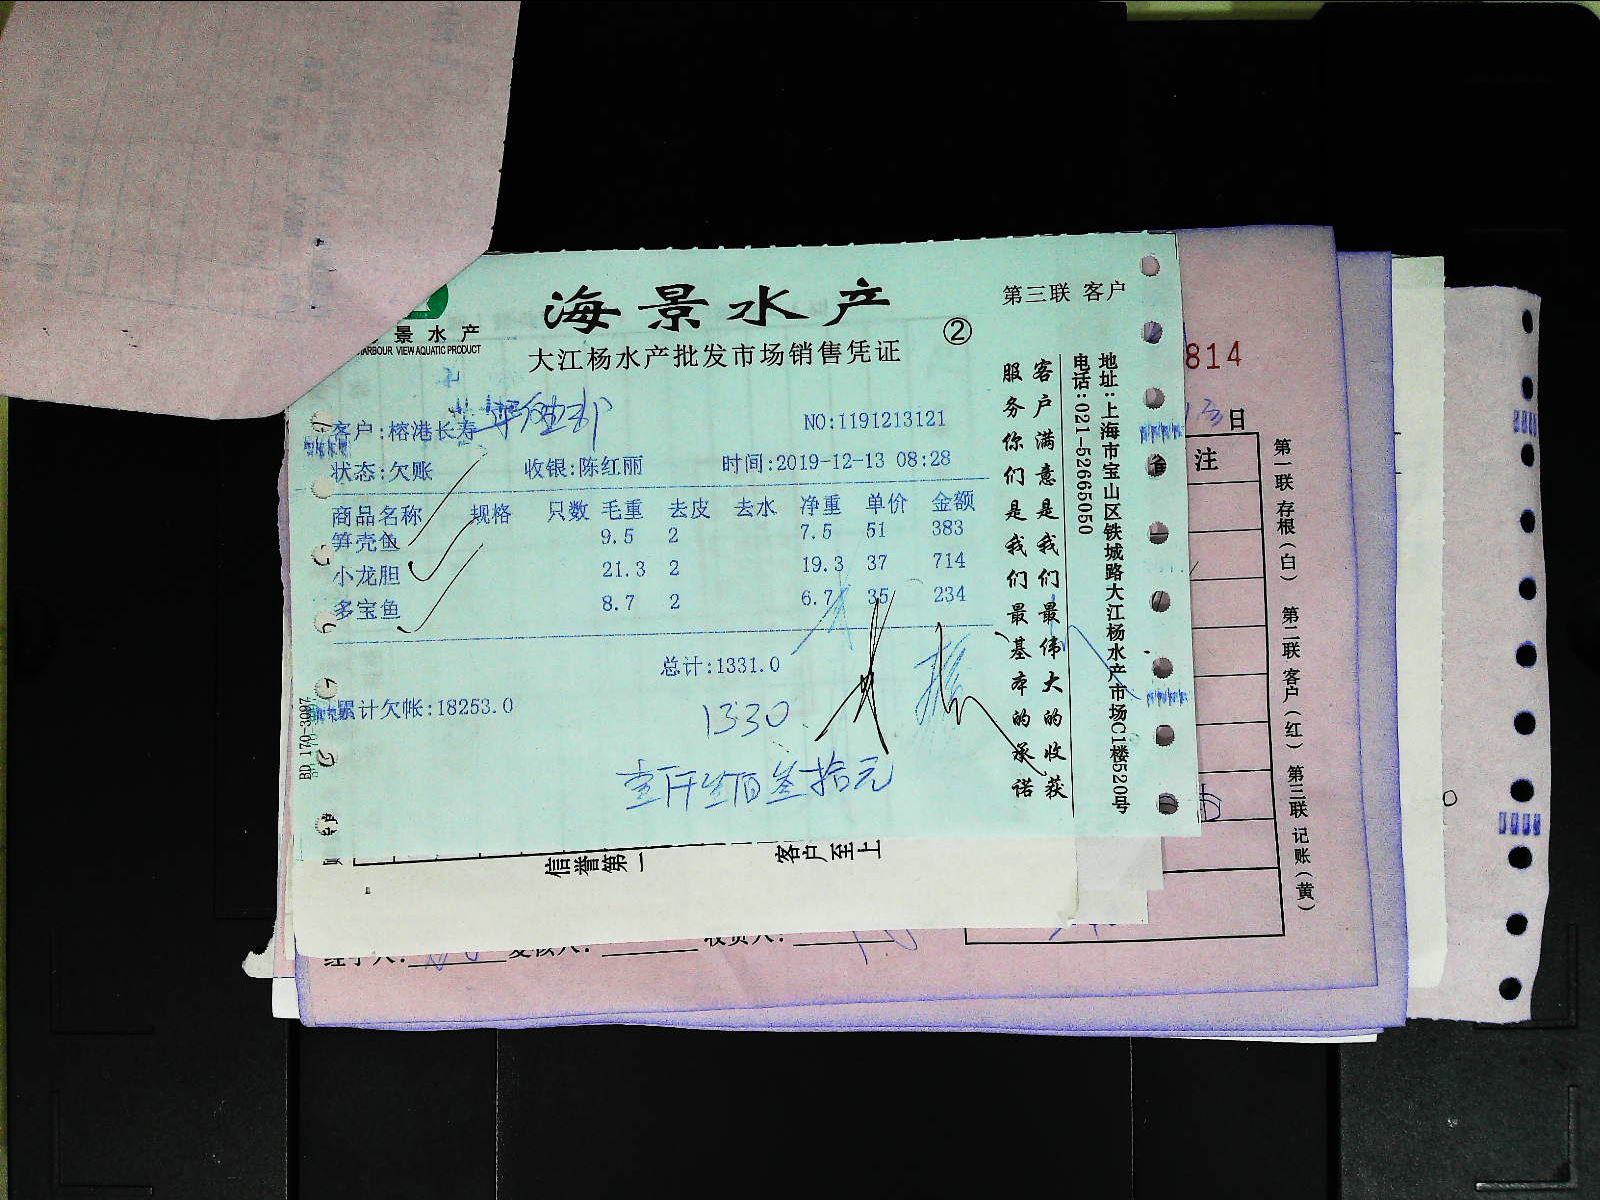 海景水产
第三联 客户
景水产
HARBOUR VIEW AQUATIC PRODUCT
大江杨水产批发市场销售凭证
②
客户:榕港长寿
NO:1191213121
状态:欠账 收银:陈红丽 时间:2019-12-13 08:28
商品名称 规格 只数 毛重 去皮 去水 净重 单价 金额
笋壳鱼 9.5 2 7.5 51 383
小龙胆 21.3 2 19.3 37 714
多宝鱼 8.7 2 6.7 35 234
总计:1331.0
累计欠帐:18253.0
1330
壹仟叁佰叁拾元
客户满意是我们最伟大的收获
服务你们是我们最基本的承诺
地址:上海市宝山区铁城路大江杨水产市场C1楼520号
电话:021-52665050
BD 170-3097
814
13日
注
第一联 存根(白) 第二联 客户(红) 第三联 记账(黄)
信誉第一
客户至上